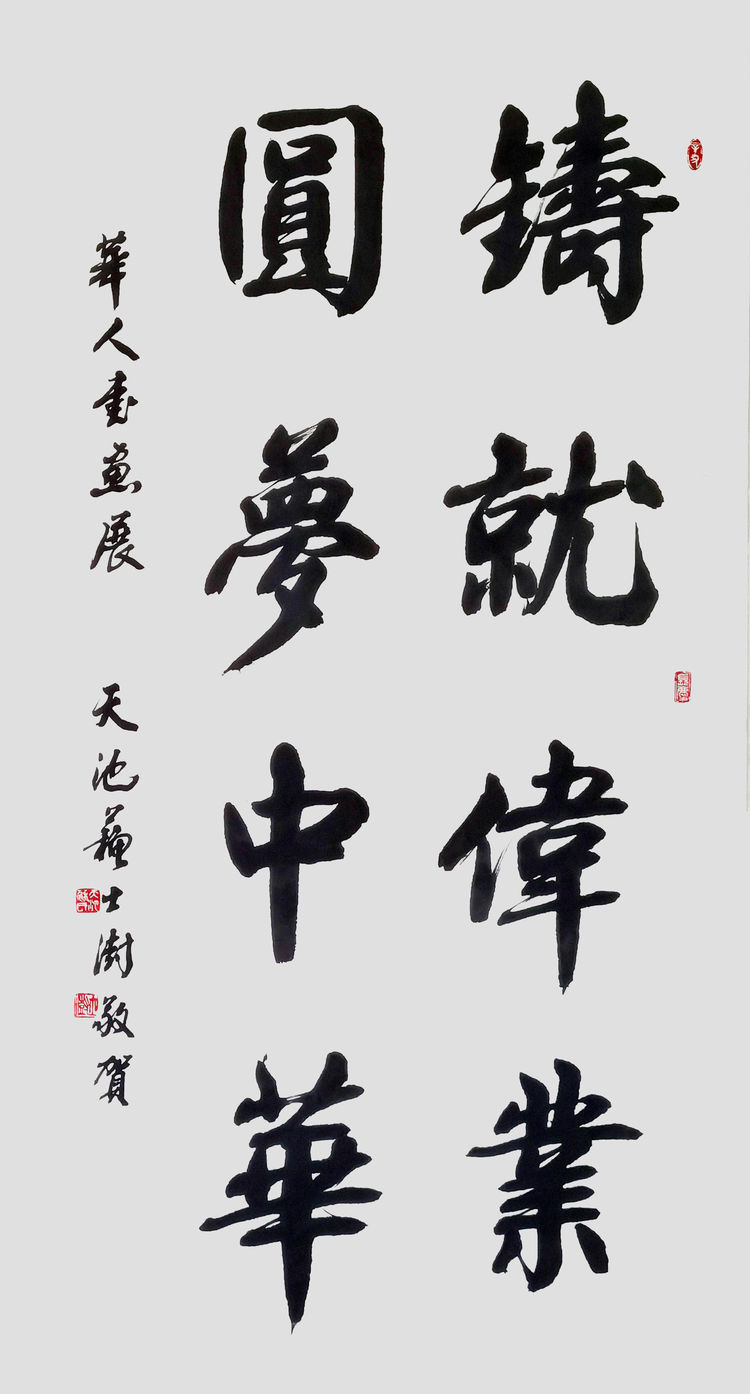 鑄就偉業
圓夢中華
華人書畫展 天池蘇士澍敬賀